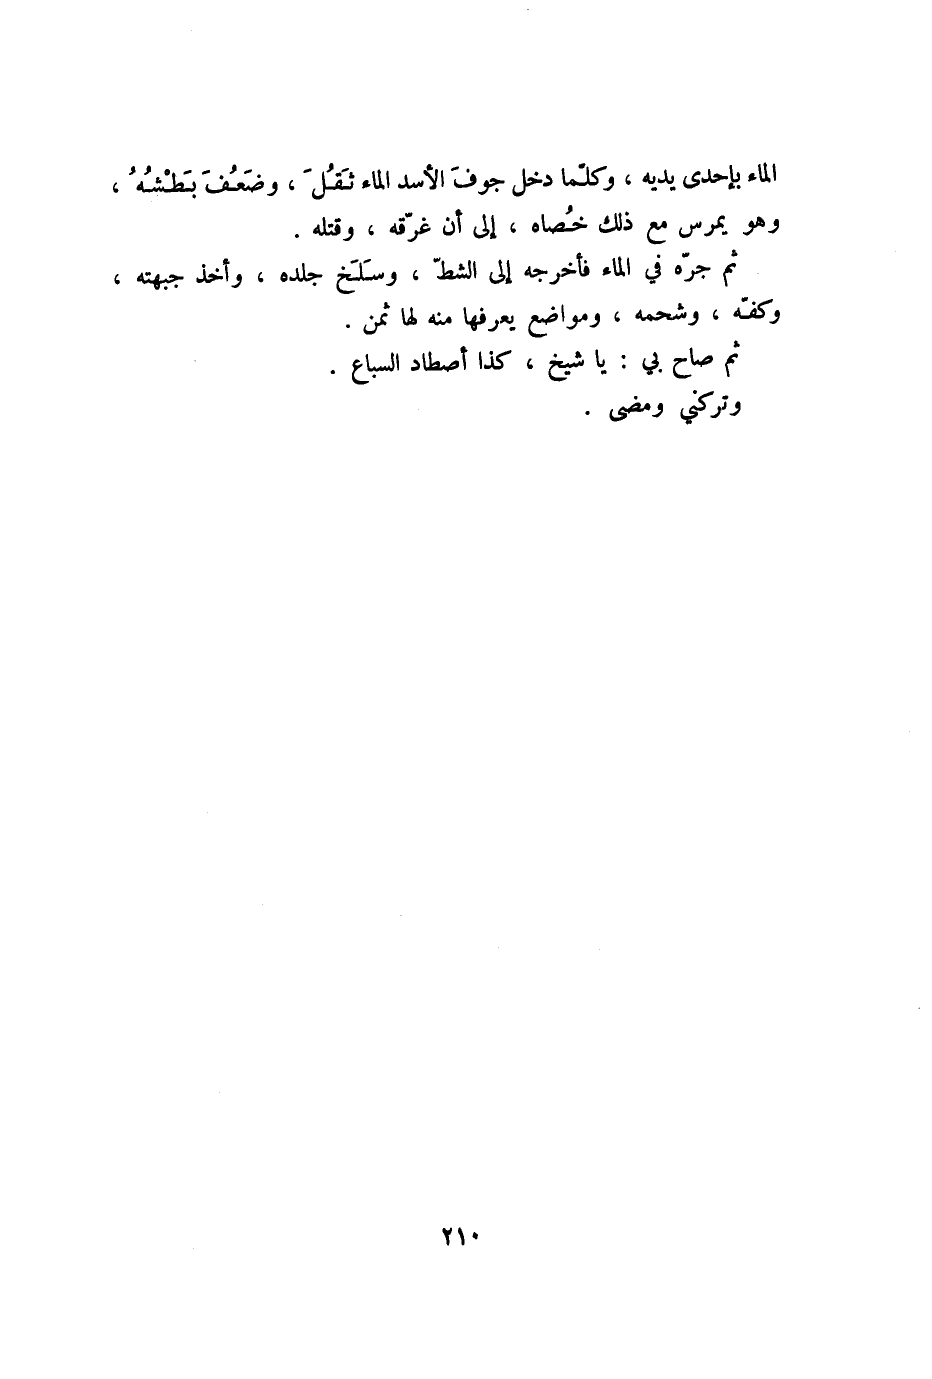 الماء بإحدى يديه ، وكلّما دخل جوفَ الأسد الماء ثَقُلَ ، وضَعُفَ بَطْشُهُ ،
وهو يمرس مع ذلك خُصاه ، إلى أن غرّقه ، وقتله .
ثم جرّه في الماء فأخرجه إلى الشطّ ، وسَلَخ جلده ، وأخذ جبهته ،
وكفّه ، وشحمه ، ومواضع يعرفها منه لها ثمن .
ثم صاح بي : يا شيخ ، كذا أصطاد السباع .
وتركني ومضى .
٢١٠